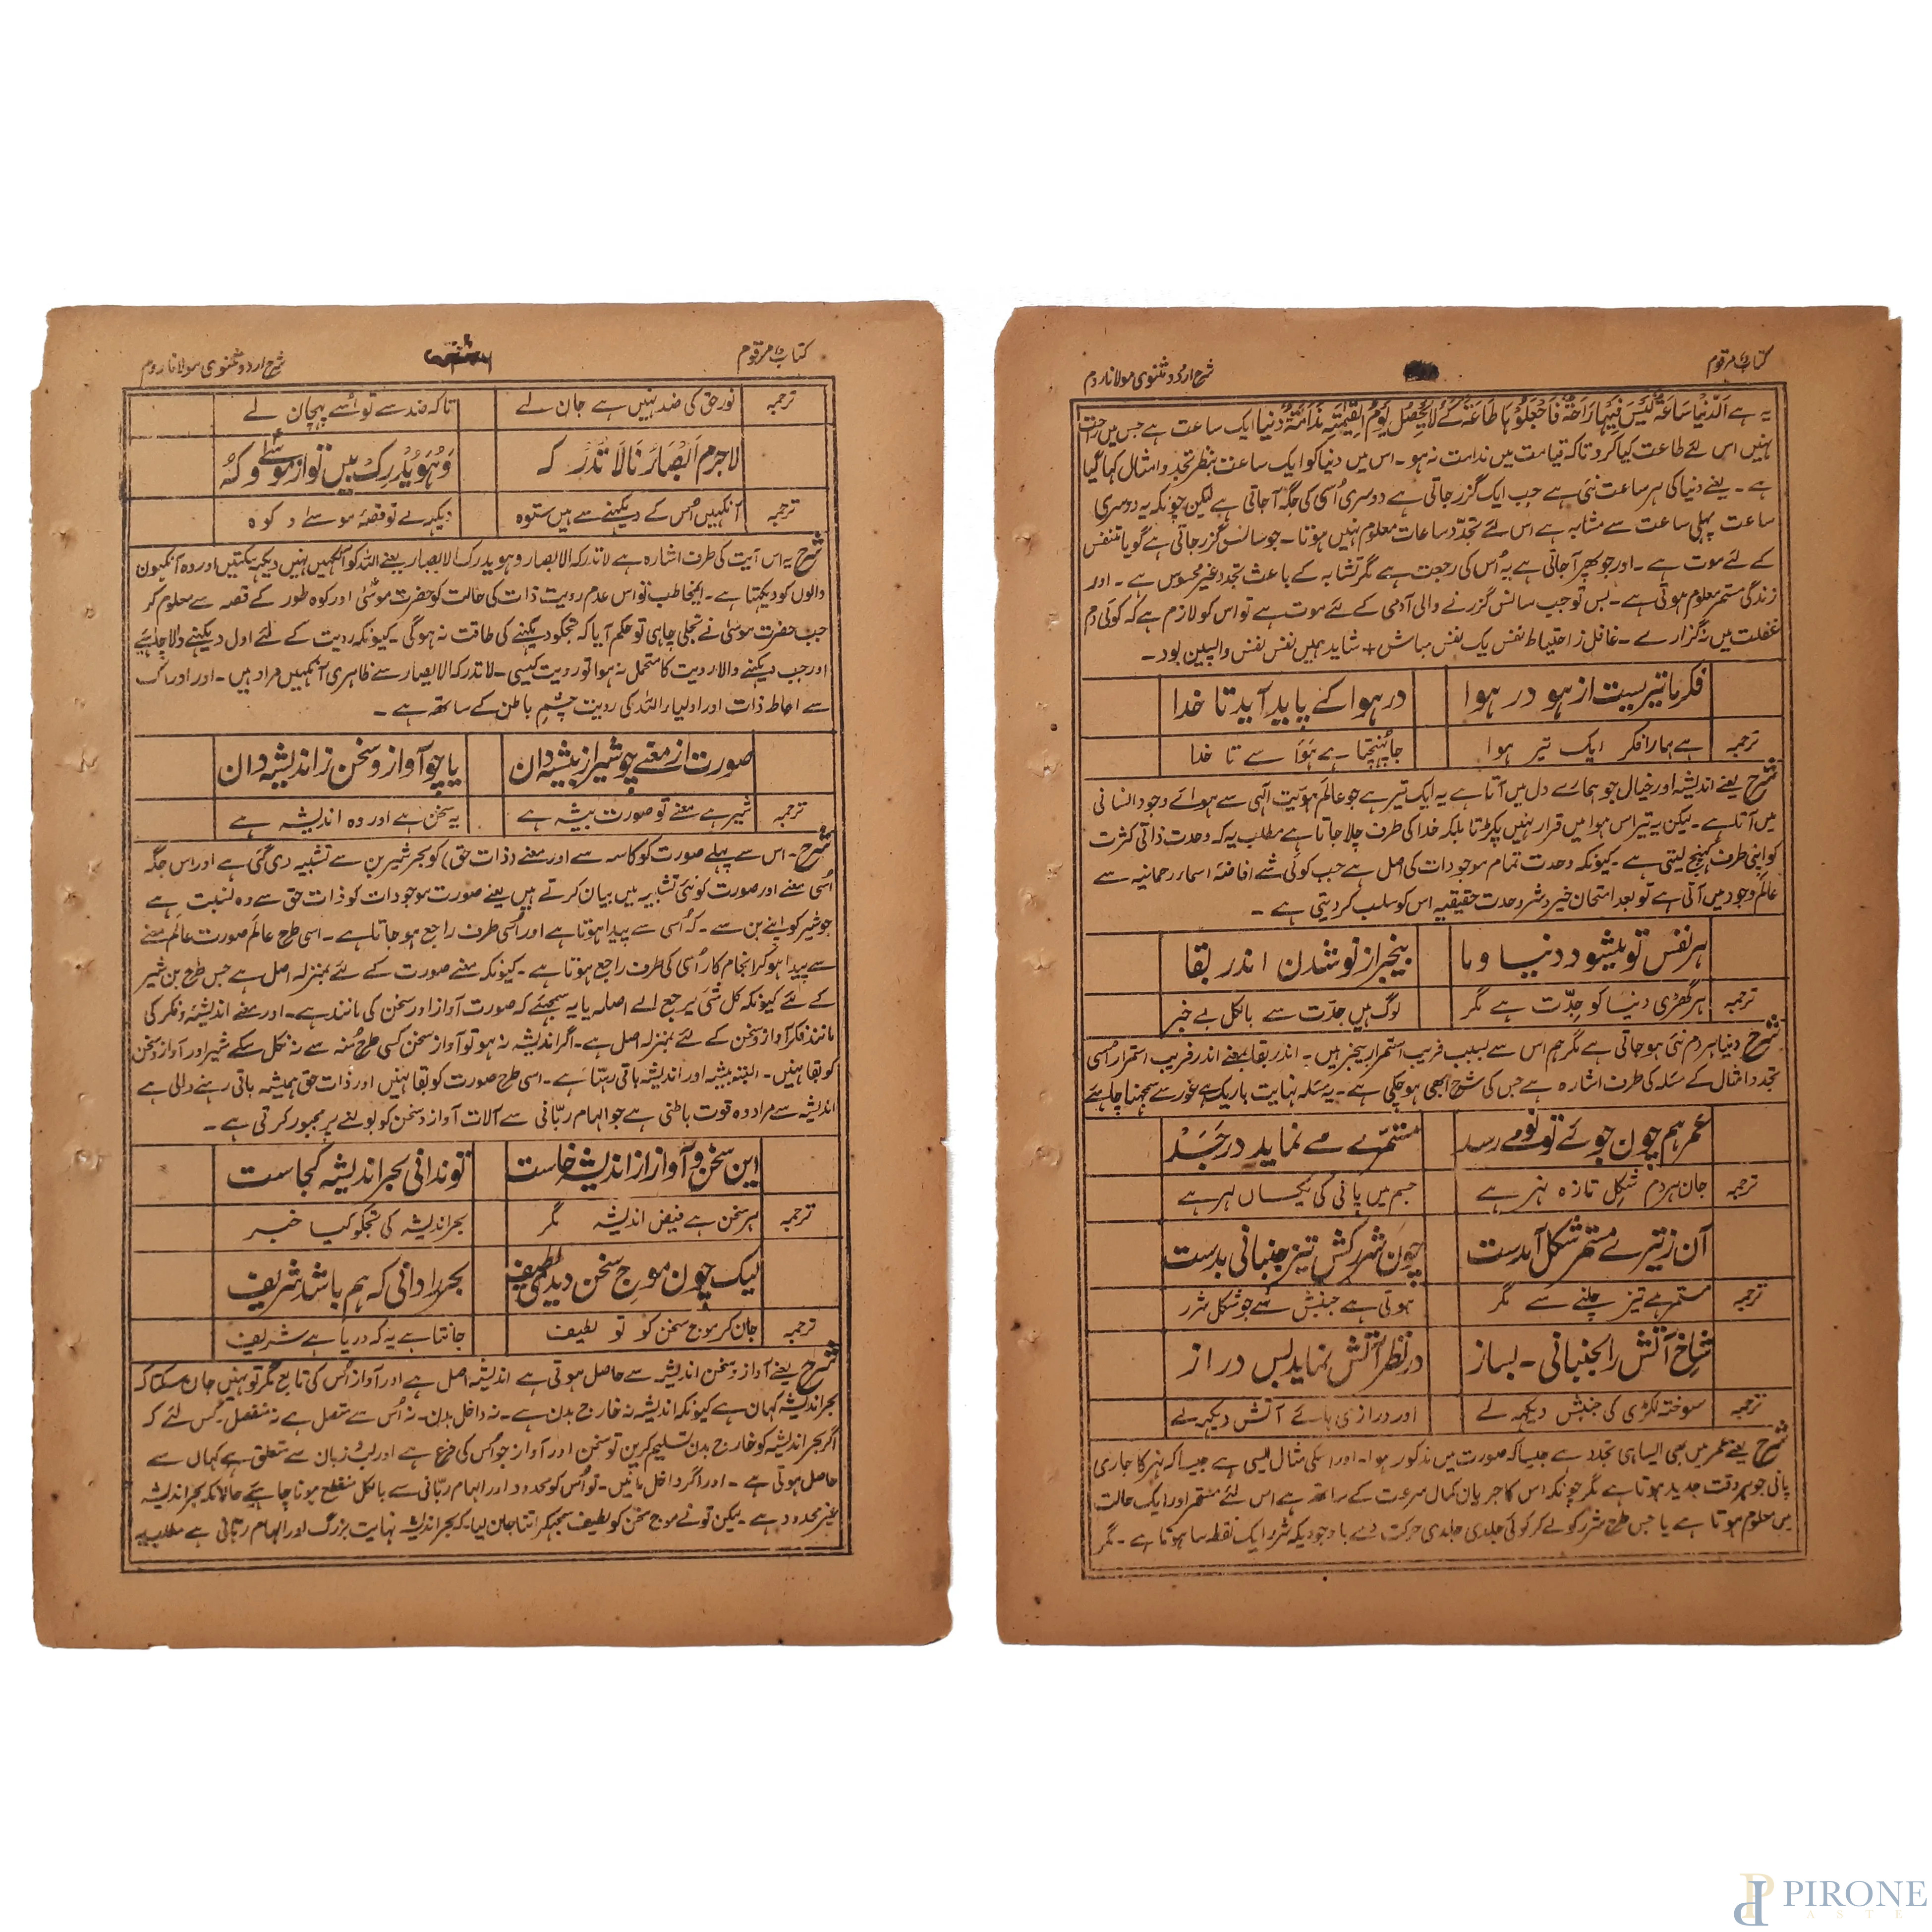 کتاب مرقوم
شرح اردو مثنوی مولانا روم
ترجمہ نور حق کی ضد نہیں ہے جان لے تاکہ ضد سے تو اُسے پہچان لے
لاجرم اَبْصَارُ نَا لَا تُدْرِ کہ وَھُوَ یُدْرِکْ بیں تو از موسےٰ و کُہ
ترجمہ آنکہیں اُس کے دیکہنے سے ہیں ستوہ دیکہ لے تو قصۂ موسےٰ و کوہ
شرح یہ اس آیت کی طرف اشارہ ہے لاتدرکہ الابصار وہو یدرک الابصار یعنے اللہ کو آنکہیں نہیں دیکہ سکتیں اور وہ آنکہیون
والوں کو دیکہتا ہے۔ ایمخاطب تو اس عدم رویت ذات کی حالت کو حضرت موسٰی اور کوہ طور کے قصہ سے معلوم کر
جب حضرت موسٰی نے تجلی چاہی تو حکم آیا کہ تجکو دیکہنے کی طاقت نہ ہوگی۔ کیونکہ رویت کے لئے اول دیکہنے والا چاہئے
اور جب دیکہنے والا رویت کا متحمل نہ ہوا تو رویت کیسی۔ لاتدرکہ الابصار سے ظاہری آنکہیں مراد ہیں۔ اور ادراک
سے احاطہ ذات اور اولیاء اللہ کی رویت چشم باطن کے ساتھ ہے۔
صورت از معنے چو شیر از بیشہ دان یا چو آواز و سخن ز اندیشہ دان
ترجمہ شیر ہے معنے تو صورت بیشہ ہے یہ سخن ہے اور وہ اندیشہ ہے
شرح۔ اس سے پہلے صورت کو کاسہ سے اور معنے (ذات حق) کو بحر شیرین سے تشبیہ دی گئی ہے اور اس جگہ
اُسی معنے اور صورت کو نئی تشبیہ میں بیان کرتے ہیں یعنے صورت موجودات کو ذات حق سے وہ نسبت ہے
جو شیر کو اپنے بن سے۔ کہ اُسی سے پیدا ہوتا ہے اور اُسی طرف راجع ہو جاتا ہے۔ اسی طرح عالم صورت عالم معنے
سے پیدا ہو کر انجام کار اُسی کی طرف راجع ہوتا ہے۔ کیونکہ معنے صورت کے لئے بمنزلہ اصل ہے جس طرح بن شیر
کے لئے کیونکہ کل شئ یرجع الے اصلہ یا یہ سمجہئے کہ صورت آواز اور سخن کی مانند ہے۔ اور معنے اندیشہ و فکر کی
مانند فکر آواز و سخن کے لئے بمنزلہ اصل ہے۔ اگر اندیشہ نہ ہو تو آواز سخن کسی طرح مُنہ سے نہ نکل سکے شیر اور آواز و سخن
کو بقا نہیں۔ البتہ بیشہ اور اندیشہ باقی رہتا ہے۔ اسی طرح صورت کو بقا نہیں اور ذات حق ہمیشہ باقی رہنے والی ہے
اندیشہ سے مراد وہ قوت باطنی ہے جو الہام ربّانی سے آلات آواز و سخن کو بولنے پر مجبور کرتی ہے۔
این سخن و آواز از اندیشہ خاست تو ندانی بحر اندیشہ کجاست
ترجمہ ہر سخن ہے فیض اندیشہ مگر بحر اندیشہ کی تجکو کیا خبر
لیک چون موج سخن دیدی لطیف بحر را دانی کہ ہم باشد شریف
ترجمہ جان کر موج سخن کو تو لطیف جانتا ہے یہ کہ دریا ہے شریف
شرح یعنے آواز و سخن اندیشہ سے حاصل ہوتی ہے اندیشہ اصل ہے اور آواز اُس کی تابع مگر تو نہیں جان سکتا کہ
بحر اندیشہ کہان ہے کیونکہ اندیشہ نہ خارج بدن ہے۔ نہ داخل بدن۔ نہ اُس سے متصل ہے نہ منفصل۔ کس لئے کہ
اگر بحر اندیشہ کو خارج بدن تسلیم کرین تو سخن اور آواز جو اُس کی فرع ہے اور لب و زبان سے متعلق ہے کہاں سے
حاصل ہوتی ہے۔ اور اگر داخل مانیں۔ تو اُس کو محدود اور الہام ربّانی سے بالکل منقطع ہونا چاہیے حالانکہ بحر اندیشہ
غیر محدود ہے۔ لیکن تو نے موج سخن کو لطیف سمجہکر اتنا جان لیا۔ کہ بحر اندیشہ نہایت بزرگ اور الہام ربّانی ہے مطلب یہ
کتاب مرقوم
شرح اردو مثنوی مولانا روم
یہ ہے اَلدُّنْیَا سَاعَۃٌ لَیْسَ فِیْہَا رَاحَۃٌ فَاجْعَلُوْ ہَا طَاعَۃً کَے لَا یَحْصِلُ یَوْمَ الْقِیٰمَۃِ نَدَامَۃٌ دنیا ایک ساعت ہے جس میں راحت
نہیں اس لئے طاعت کیا کرو تاکہ قیامت میں ندامت نہ ہو۔ اس میں دنیا کو ایک ساعت بنظر تجدد امثال کہا گیا
ہے۔ یعنے دنیا کی ہر ساعت نئی ہے جب ایک گزر جاتی ہے دوسری اُسی کی جگہ آجاتی ہے لیکن چونکہ یہ دوسری
ساعت پہلی ساعت سے مشابہ ہے اس لئے تجدّد ساعات معلوم نہیں ہوتا۔ جو سانس گزر جاتی ہے گویا متنفس
کے لئے موت ہے۔ اور جو پھر آجاتی ہے یہ اُس کی رجعت ہے مگر تشابہ کے باعث تجدد غیر محسوس ہے۔ اور
زندگی مستمر معلوم ہوتی ہے۔ بس تو جب سانس گزرنے والی آدمی کے لئے موت ہے تو اس کو لازم ہے کہ کوئی دم
غفلت میں نہ گزارے۔ غافل ز احتیاط نفس یک نفس مباش + شاید ہمیں نفس نفس واپسین بود۔
فکر ما تیریست از ہو در ہوا در ہوا کے پاید آید تا خدا
ترجمہ ہے ہمارا فکر ایک تیر ہوا جا پُہنچتا ہے ہَوَا سے تا خدا
شرح یعنے اندیشہ اور خیال جو ہمارے دل میں آتا ہے یہ ایک تیر ہے جو عالم ہویّت الٰہی سے ہوائے وجود انسانی
میں آتا ہے۔ لیکن یہ تیر اس ہوا میں قرار نہیں پکڑتا بلکہ خدا کی طرف چلا جاتا ہے مطلب یہ کہ وحدت ذاتی کثرت
کو اپنی طرف کہینچ لیتی ہے۔ کیونکہ وحدت تمام موجودات کی اصل ہے جب کوئی شے افاضۂ اسماء رحمانیہ سے
عالم وجود میں آتی ہے تو بعد امتحان خیر و شر وحدت حقیقیہ اس کو سلب کر دیتی ہے۔
ہر نفس نو میشود دنیا و ما بیخبر از نو شدن اندر بقا
ترجمہ ہر گھڑی دنیا کو جدّت ہے مگر لوگ ہیں جدّت سے بالکل بے خبر
شرح دنیا ہر دم نئی ہو جاتی ہے مگر ہم اس سے بسبب فریب استمرار بیخبر ہیں۔ اندر بقا بمعنے اندر فریب استمرار اسی
تجدد امثال کے مسئلہ کی طرف اشارہ ہے جس کی شرح ابھی ہو چکی ہے۔ یہ مسئلہ نہایت باریک ہے غور سے سمجہنا چاہئے
عمر ہم چون جوئے نو نو مے رسد مستمرے مے نماید در جَسَدْ
ترجمہ جان ہر دم شکل تازہ نہر ہے جسم میں پانی کی یکساں لہر ہے
آن ز تیزے مستمر شکل آمدست چون شرر کش تیز جنبانی بدست
ترجمہ مستمر ہے تیز چلنے سے مگر ہوتی ہے جنبش سے جو شکل شرر
شاخ آتش را بجنبانی۔ بساز در نظر آتش نماید بس دراز
ترجمہ سوختہ لکڑی کی جنبش دیکہہ لے اور درازی ہائے آتش دیکہ لے
شرح یعنے عمر میں بھی ایسا ہی تجدد ہے جیسا کہ صورت میں مذکور ہوا۔ اور اسکی مثال ایسی ہے جیسا کہ نہر کا جاری
پانی جو ہر وقت جدید ہوتا ہے مگر چونکہ اس کا جریان کمال سرعت کے ساتھ ہے اس لئے مستمر اور ایک حالت
میں معلوم ہوتا ہے یا جس طرح شرر کو لے کر کوئی جلدی جلدی حرکت دے باوجودیکہ شرر ایک نقطہ سا ہوتا ہے۔ مگر
PIRONE
ASTE